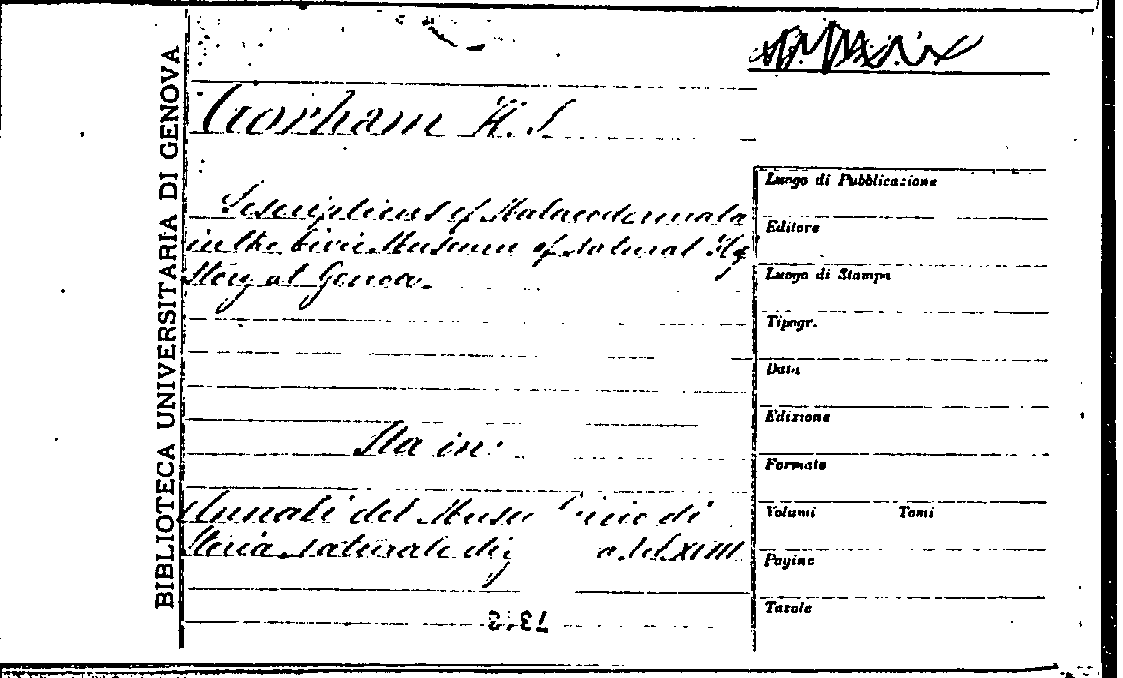 BIBLIOTECA UNIVERSITARIA DI GENOVA
Gorham H. S.
Descriptions of Malacodermata
in the Civic Museum of Natural Hi
story at Genoa.
Sta in:
Annali del Museo Civico di
Storia naturale di
Luogo di Pubblicazione
Editore
Luogo di Stampa
Tipogr.
Data
Edizione
Formato
Volumi Tomi
Pagine
Tavole